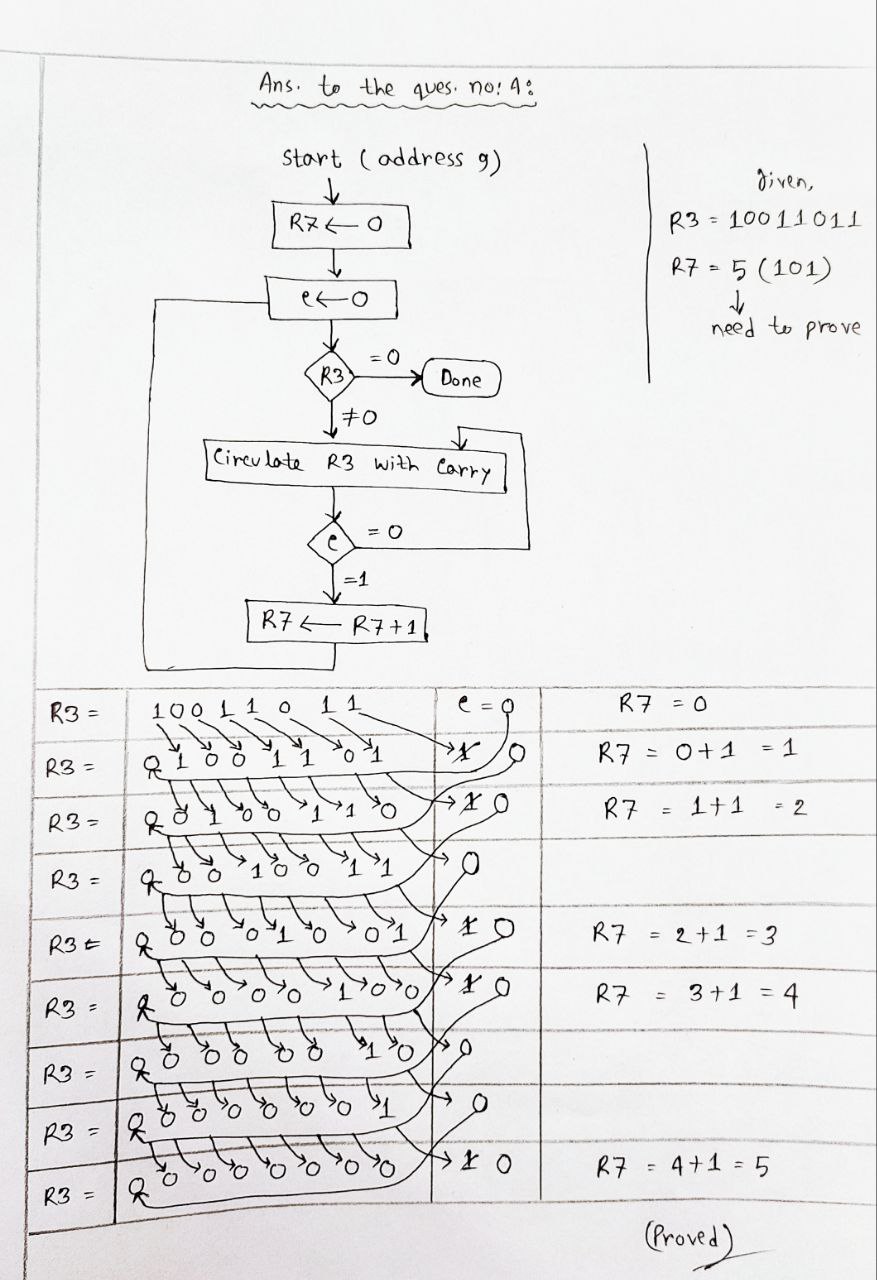 Ans. to the ques. no: 4:
start (address 9)
R7 ← 0
e ← 0
R3
= 0
Done
≠0
Circulate R3 with Carry
e
= 0
=1
R7 ← R7+1
given,
R3 = 10011011
R7 = 5 (101)
↓
need to prove
R3 = 1 0 0 1 1 0 1 1 e = 0 R7 = 0
R3 = 0 1 0 0 1 1 0 1 1 0 R7 = 0+1 = 1
R3 = 0 0 1 0 0 1 1 0 1 0 R7 = 1+1 = 2
R3 = 0 0 0 1 0 0 1 1 0
R3 = 0 0 0 0 1 0 0 1 1 0 R7 = 2+1 = 3
R3 = 0 0 0 0 0 1 0 0 1 0 R7 = 3+1 = 4
R3 = 0 0 0 0 0 0 1 0 0
R3 = 0 0 0 0 0 0 0 1 0
R3 = 0 0 0 0 0 0 0 0 1 0 R7 = 4+1 = 5
(Proved)